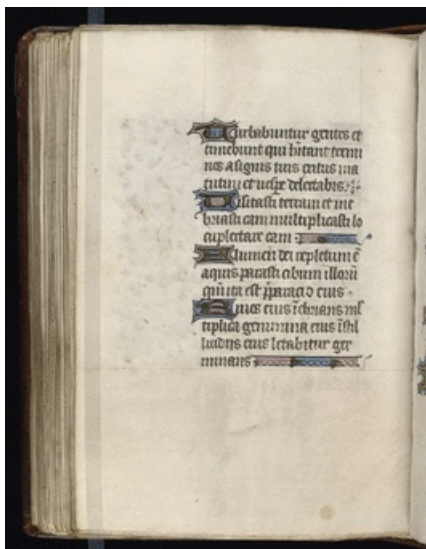 Turbabuntur gentes et
timebunt qui hītant termi
nos a signis tuis exitus ma
tutini et uesp̄e delectabis
Uisitasti terram et ine
briasti eam multiplicasti lo
cupletare eam
Flumen dei repletum ē
aquis parasti cibum illorū
qm̄ ita est p̄paracio eius
Riuos eius īebrians ml̄
tiplica genimina eius ī stil
licidijs eius letabitur ger
minans